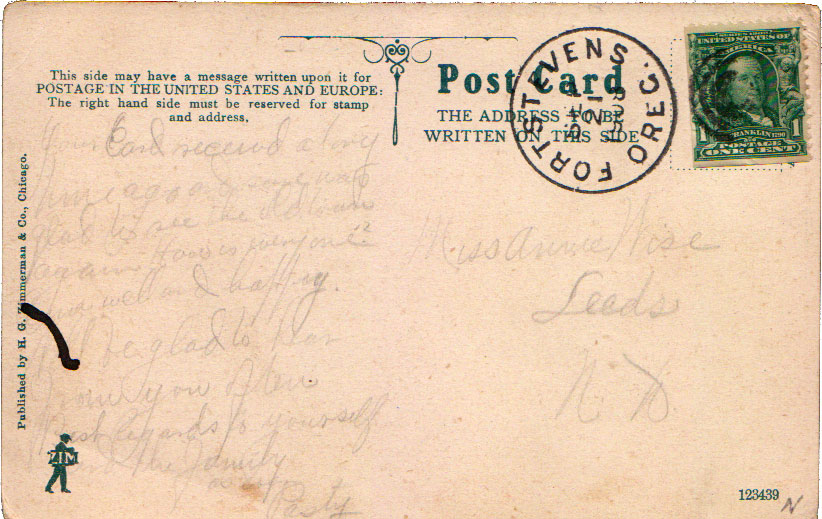 This side may have a message written upon it for
POSTAGE IN THE UNITED STATES AND EUROPE:
The right hand side must be reserved for stamp
and address.
Post Card
THE ADDRESS TO BE
WRITTEN ON THIS SIDE
FORT STEVENS. OREG.
UNITED STATES OF
AMERICA
FRANKLIN 1790
1 POSTAGE 1
ONE CENT
Card received
glad to see the old town
again How is everyone
well and happy.
be glad to hear
from you often
Best regards to yourself
and the family
Miss Annie Wise
Leeds
N. D
Published by H. G. Zimmerman & Co., Chicago.
ZIM
123439
N